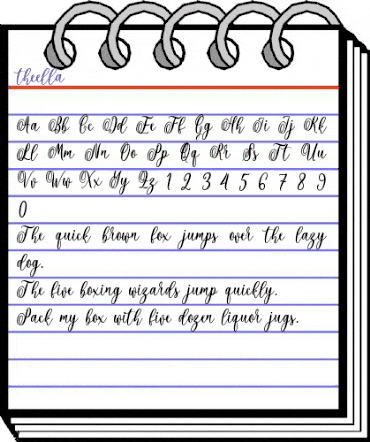 theella
Aa Bb Cc Dd Ee Ff Gg Hh Ii Jj Kk
Ll Mm Nn Oo Pp Qq Rr Ss Tt Uu
Vv Ww Xx Yy Zz 1 2 3 4 5 6 7 8 9
0
The quick brown fox jumps over the lazy
dog.
The five boxing wizards jump quickly.
Pack my box with five dozen liquor jugs.